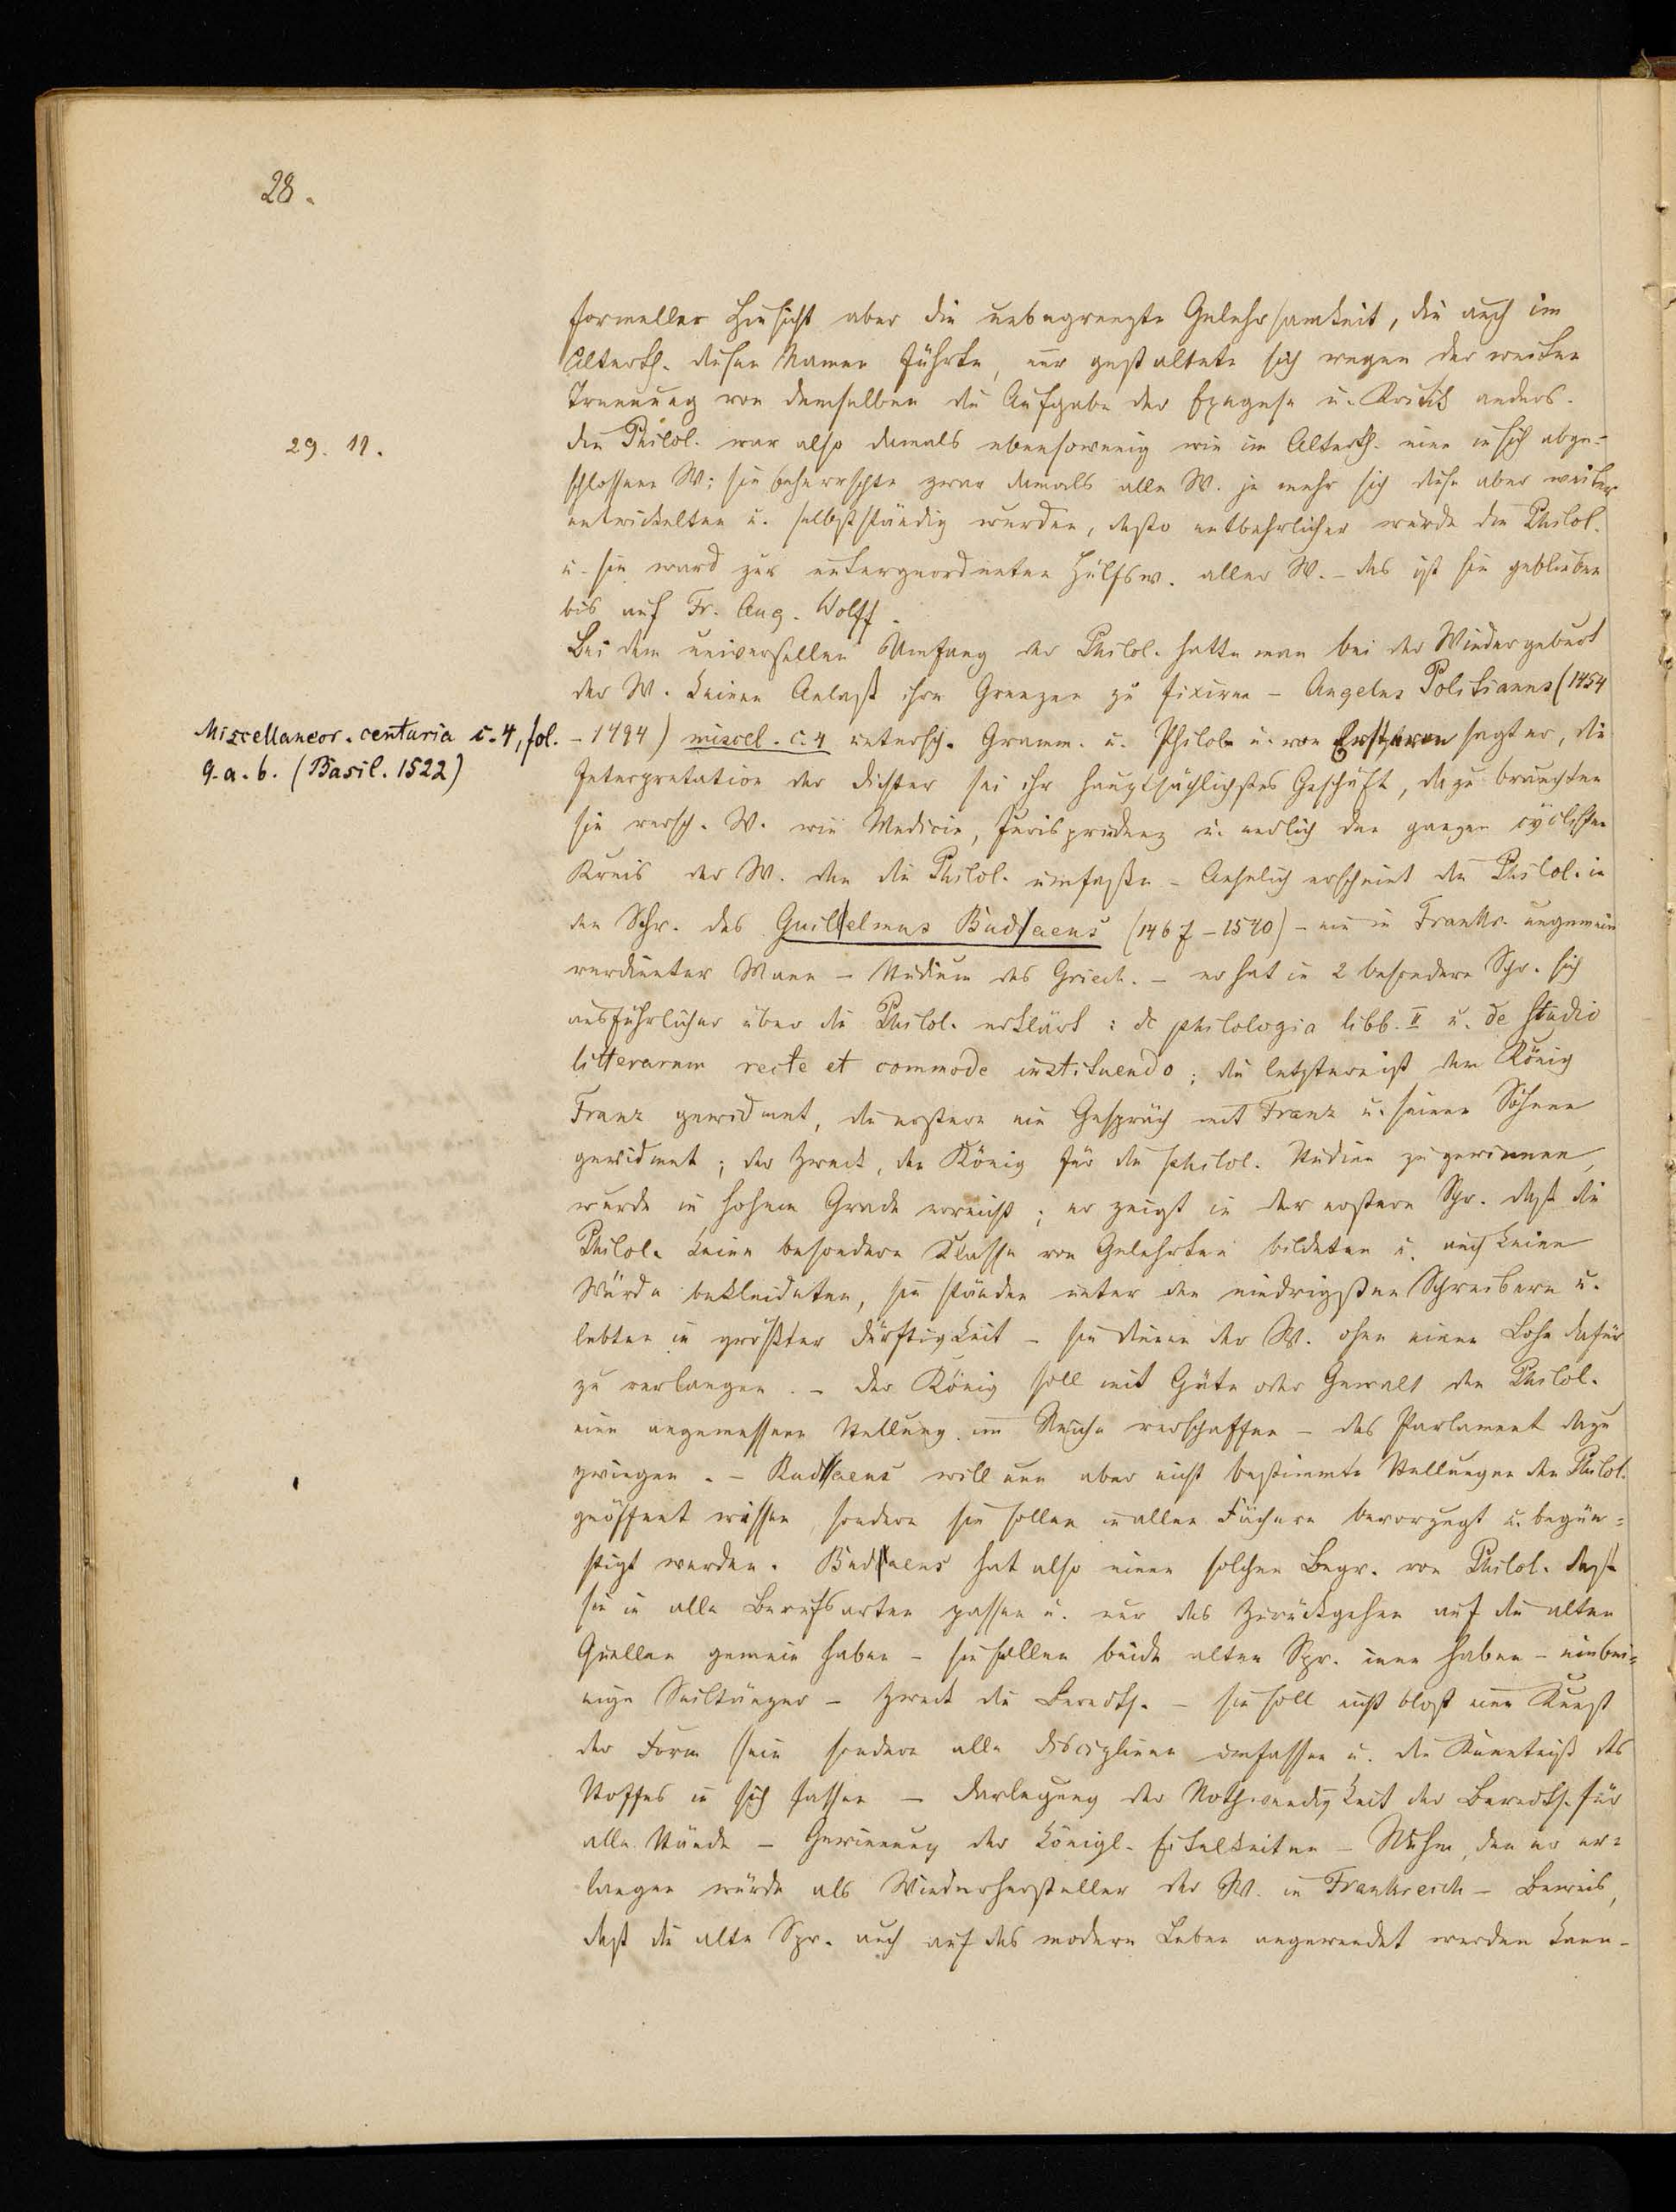 28.
formeller Hinsicht aber die unbegrenzte Gelehrsamkeit, die auch im
Alterth. diesen Namen führte, nur gestaltete sich wegen der weiten
Trennung von demselben die Aufgabe der Exegese u. Kritik anders.
29. 11.
Die Philol. war also damals ebensowenig wie im Alterth. eine in sich abge-
schlossene W; sie beherrschte zwar damals alle W. je mehr sich diese aber weiter
entwickelten u. selbstständig wurden, desto entbehrlicher wurde die Philol.
u. sie ward zur untergeordneten Hülfsw. aller W. – das ist sie geblieben
bis auf Fr. Aug. Wolff.
Bei dem universellen Umfang der Philol. hatte man bei der Wiedergeburt
der W. keinen Anlaß ihre Grenzen zu fixiren – Angelus Politianus (1454
Miscellaneor. centuria c. 4, fol.
9. a. b. (Basil. 1522)
– 1494) miscel. c. 4 untersch. Gramm. u. Philol. u. von Ersteren sagt er, die
Interpretation der Dichter sei ihr hauptsächlichstes Geschäft, dazu brauchten
sie versch. W. wie Medicin, Jurisprudenz u. endlich den ganzen cyclischen
Kreis der W. den die Philol. umfaßte – Aehnlich erscheint die Philol. in
den Schr. des Guilelmus Budaeus (1467–1540) – ein in Frankr. ungemein
verdienter Mann – Studium des Griech. – er hat in 2 besondern Schr. sich
ausführlicher über die Philol. erklärt: de philologia libb. II u. de studio
litterarum recte et commode instituendo; die letztere ist dem König
Franz gewidmet, die erstere ein Gespräch mit Franz u. seinen Söhnen
gewidmet; der Zweck, den König für die philol. Studien zu gewinnen,
wurde in hohem Grade erreicht; er zeigt in der erstern Schr. daß die
Philol. keine besondere Klasse von Gelehrten bildeten u. auch keine
Würde bekleideten, sie ständen unter den niedrigsten Schreibern u.
lebten in größter Dürftigkeit – sie dienen der W. ohne einen Lohn dafür
zu verlangen. – Der König soll mit Güte oder Gewalt den Philol.
eine angemessene Stellung im Reiche verschaffen – das Parlament dazu
zwingen. – Budaeus will nun aber nicht bestimmte Stellungen den Philol.
geöffnet wissen, sondern sie sollen in allen Fächern bevorzugt u. begün-
stigt werden. Budaeus hat also einen solchen Begr. von Philol. daß
sie in alle Berufsarten passen u. nur das Zurückgehen auf die alten
Quellen gemein haben – sie sollen beide alten Spr. inne haben – einbei-
nige Seiltänzer – Zweck die Beredts. – sie soll nicht bloß eine Kunst
der Form sein sondern alle Disciplinen umfassen u. die Kenntniß des
Stoffes in sich fassen – Darlegung der Nothwendigkeit der Beredts. für
alle Stände – Gewinnung der königl. Eitelkeiten – Ruhm, den er er-
langen würde als Wiederhersteller der W. in Frankreich – Beweis,
daß die alte Spr. auch auf das moderne Leben angewendet werden kann –